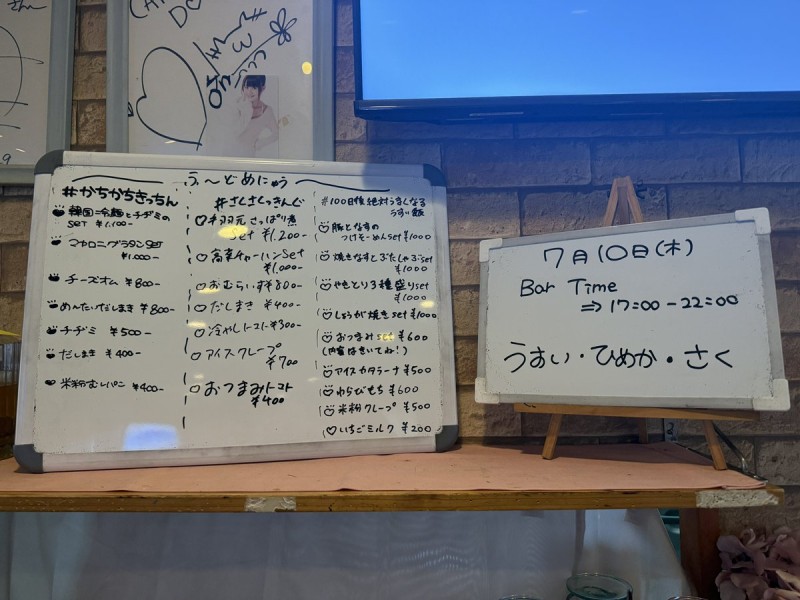 ふ〜どめにゅう
#かちかちきっちん
韓国冷麺とチヂミの
set ¥1.100-
マカロニグラタンset
¥1.000-
チーズオム ¥800-
めんたいだしまき ¥800-
チヂミ ¥500-
だしまき ¥400-
米粉むしパン ¥400-
#さくさくっきんぐ
手羽元さっぱり煮
set ¥1.200-
高菜チャーハンset
¥1.000-
おむらいす ¥800-
だしまき ¥400-
冷やしトマト ¥300-
アイスクレープ
¥700
おつまみトマト
¥400
#100日後絶対うまくなる
うすい飯
豚となすの
つけそーめんset ¥1000
焼きなすとぶたしゃぶset
¥1000
やきとり3種盛りset
¥1000
しょうが焼きset ¥1000
おつまみset ¥600
(内容はきいてね!)
アイスカタラーナ ¥500
わらびもち ¥600
米粉クレープ ¥500
いちごミルク ¥200
7月10日(木)
Bar Time
⇒ 17:00-22:00
うすい・ひめか・さく